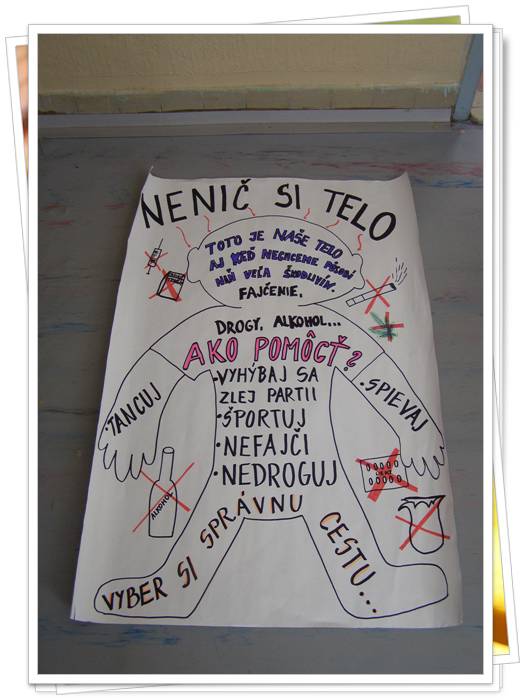 NENIČ SI TELO
TOTO JE NAŠE TELO
AJ KEĎ NECHCEME PÔSOBÍ
NAŇ VEĽA ŠKODLIVÍN.
FAJČENIE,
DROGY, ALKOHOL...
AKO POMÔCŤ?
• VYHÝBAJ SA
ZLEJ PARTII
• ŠPORTUJ
• NEFAJČI
• NEDROGUJ
• TANCUJ
• SPIEVAJ
ALKOHOL
VYBER SI SPRÁVNU CESTU...